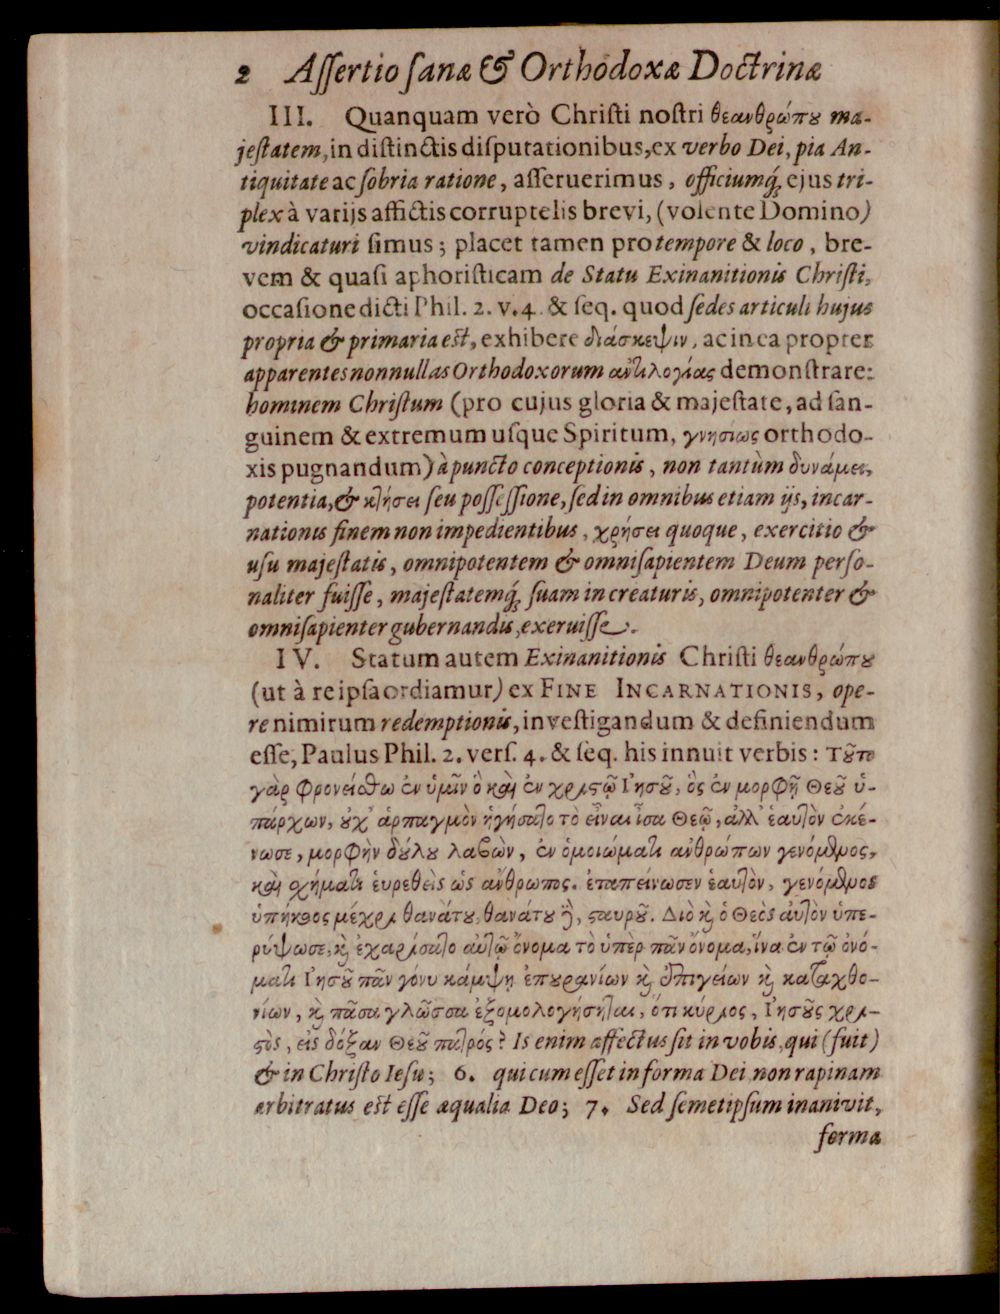 2 Aſſertio ſanæ & Orthodoxæ Doctrinæ
III. Quanquam verò Chriſti noſtri θεανθρώπȣ ma-
jeſtatem, in diſtinctis diſputationibus, ex verbo Dei, pia An-
tiquitate ac ſobria ratione, aſſeruerimus, officiumq́; ejus tri-
plex à varijs affictis corruptelis brevi, (volente Domino)
vindicaturi ſimus; placet tamen pro tempore & loco, bre-
vem & quaſi aphoriſticam de Statu Exinanitionis Chriſti,
occaſione dicti Phil. 2. v. 4. & ſeq. quod ſedes articuli hujus
propria & primaria eſt, exhibere διάσκεψιν, ac in ea propter
apparentes nonnullas Orthodoxorum ἀντιλογίας demonſtrare:
hominem Chriſtum (pro cujus gloria & majeſtate, ad ſan-
guinem & extremum uſque Spiritum, γνησίως orthodo-
xis pugnandum) à puncto conceptionis, non tantùm δυνάμει,
potentia, & κλήσει ſeu poſſeſſione, ſed in omnibus etiam ijs, incar-
nationis finem non impedientibus, χρήσει quoque, exercitio &
uſu majeſtatis, omnipotentem & omniſapientem Deum perſo-
naliter fuiſſe, majeſtatemq́; ſuam in creaturis, omnipotenter &
omniſapienter gubernandis, exeruiſſe.
IV. Statum autem Exinanitionis Chriſti θεανθρώπȣ
(ut à re ipſa ordiamur) ex FINE INCARNATIONIS, ope-
re nimirum redemptionis, inveſtigandum & definiendum
eſſe, Paulus Phil. 2. verſ. 4. & ſeq. his innuit verbis: Τȣ͂το
γὰρ φρονείσθω ἐν ὑμῖν ὃ καὶ ἐν χριστῷ Ἰησȣ͂, ὃς ἐν μορφῇ Θεȣ͂ ὑ-
πάρχων, ȣ̓χ' ἁρπαγμὸν ἡγήσατο τὸ εἶναι ἶσα Θεῷ, ἀλλ' ἑαυτὸν ἐκέ-
νωσε, μορφὴν δȣ́λȣ λαβὼν, ἐν ὁμοιώματι ἀνθρώπων γενόμενος,
καὶ σχήματι ἑυρεθεὶς ὡς ἄνθρωπος. ἐταπείνωσεν ἑαυτὸν, γενόμενος
ὑπήκοος μέχρι θανάτȣ, θανάτȣ δὲ, σταυρȣ͂. Διὸ καὶ ὁ Θεὸς ἀυτὸν ὑπε-
ρύψωσε, καὶ ἐχαρίσατο αὐτῷ ὄνομα τὸ ὑπὲρ πᾶν ὄνομα, ἵνα ἐν τῷ ὀνό-
ματι Ἰησȣ͂ πᾶν γόνυ κάμψῃ ἐπȣρανίων καὶ ἐπιγείων καὶ καταχθο-
νίων, καὶ πᾶσα γλῶσσα ἐξομολογήσηται, ὅτι κύριος, Ἰησȣ͂ς χρι-
στὸς, εἰς δόξαν Θεȣ͂ πατρός? Is enim affectus ſit in vobis, qui (fuit)
& in Chriſto Ieſu; 6. qui cum eſſet in forma Dei non rapinam
arbitratus eſt eſſe æqualia Deo; 7. Sed ſemetipſum inanivit,
forma